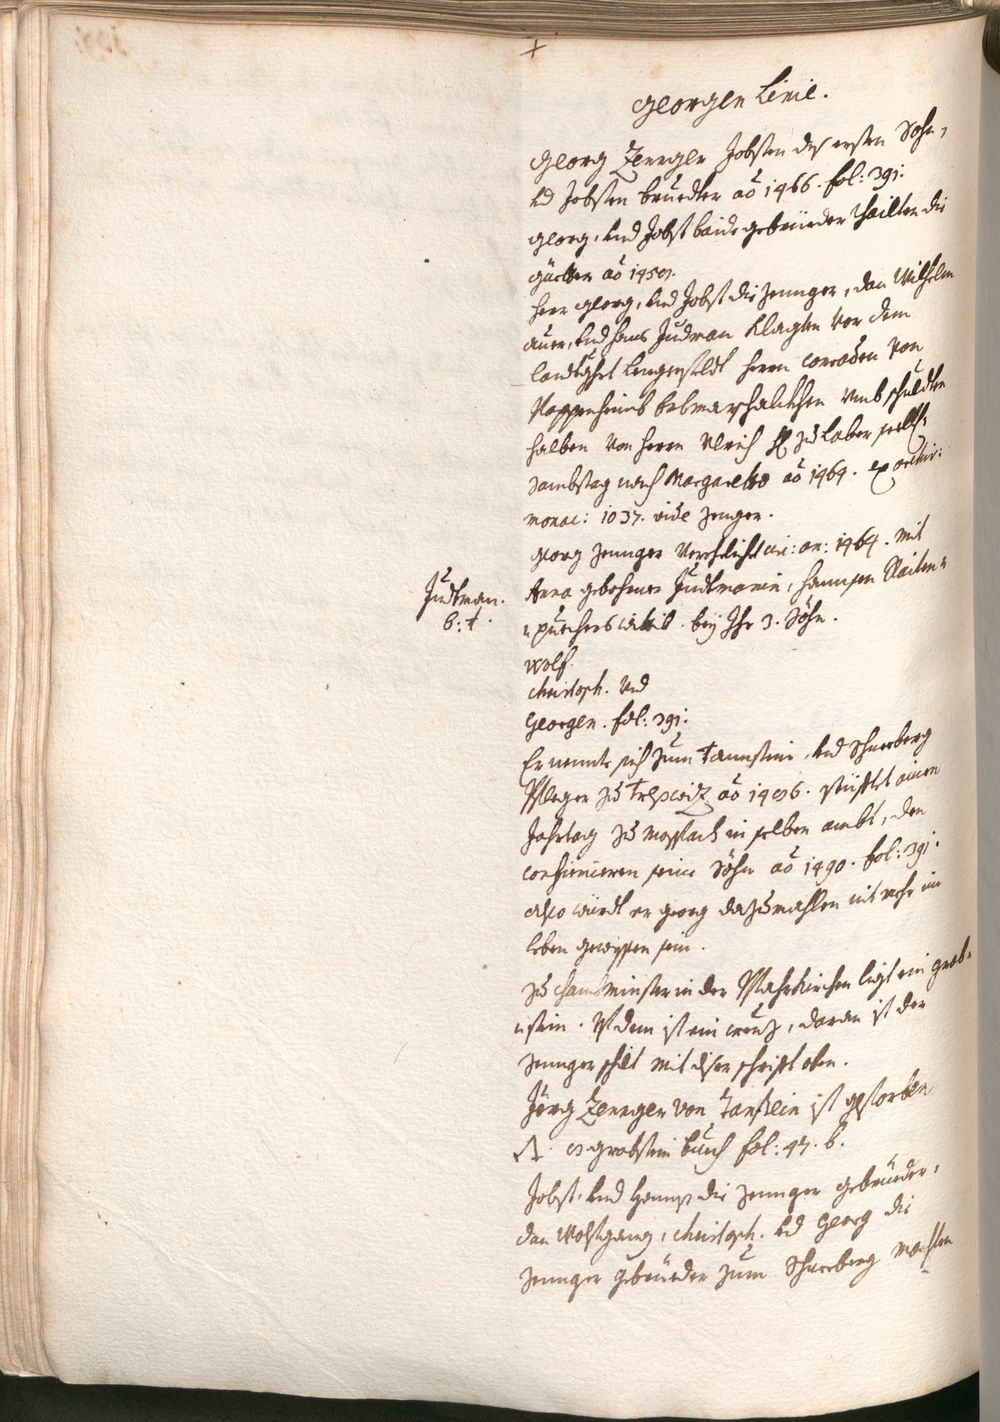 +
Georgen Linie.
Georg Zennger Jobsten des ersten Sohn,
Vnd Jobsten bruedter aō 1466. fol: 391:
Georg, Vnd Jobst baide gebrüeder thailten die
güetter aō 1459.
herr Georg, Vnd Jobst die Zennger, dan Wilhelm
auer, Vnd hans Judman Klagten vor dem
landtgricht hern Conraden von
Pappenheimb Erbmarschalckhen vmb schulden
halben von herrn Vlrich zu Laber
Sambstag nach Margaretha aō 1464. ex
monac: 1037. vide Zenger.
Georg Zennger Verehelicht: an: 1464. mit
Anna gebohrner Judtmanin, hannsen Staiten=
=puechers wittib. bey Ihr 3. Söhn.
Judtman.
b: t.
Wolf.
Christoph. Vnd
Georgen. fol: 391:
Er nennte sich zum Tannstein, Vnd Schneeberg
Pfleger zu Treswiz aō 1486. stüfftet ainen
Jahrtag zu in selben ambt, den
confirmieren seine Söhn aō 1490. fol: 391:
also würdt er Georg dazumahlen nit mehr im
leben gewessen sein.
zu Chamminster in der Pfahrkirchen ligt ein grab=
=stein. Vf dem ist ein creuz, daran ist der
Zennger schilt mit diser schrifft oben.
Jörg Zennger von Tanstein ist gestorben
grabstein buech fol: 47. b.
Jobst, Vnd Hanns die Zennger gebrüeder,
dan Wolfgang, Christoph. Vnd Georg die
Zennger gebrüeder zum Schneeberg machten